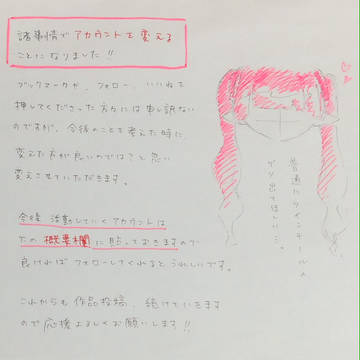 諸事情でアカウントを変える
ことになりました!!
ブックマークや、フォロー、いいねを
押してくださった方々には申し訳ない
のですが、今後のことを考えた時に
変えた方が良いのでは?と思い
変えさせていただきます。
今後 活動していくアカウントは
下の 概要欄 に貼っておきますので
良ければ フォローしてくれると うれしいです。
これからも 作品投稿、続けていきます
ので応援よろしくお願いします!!
普通にツインテールの